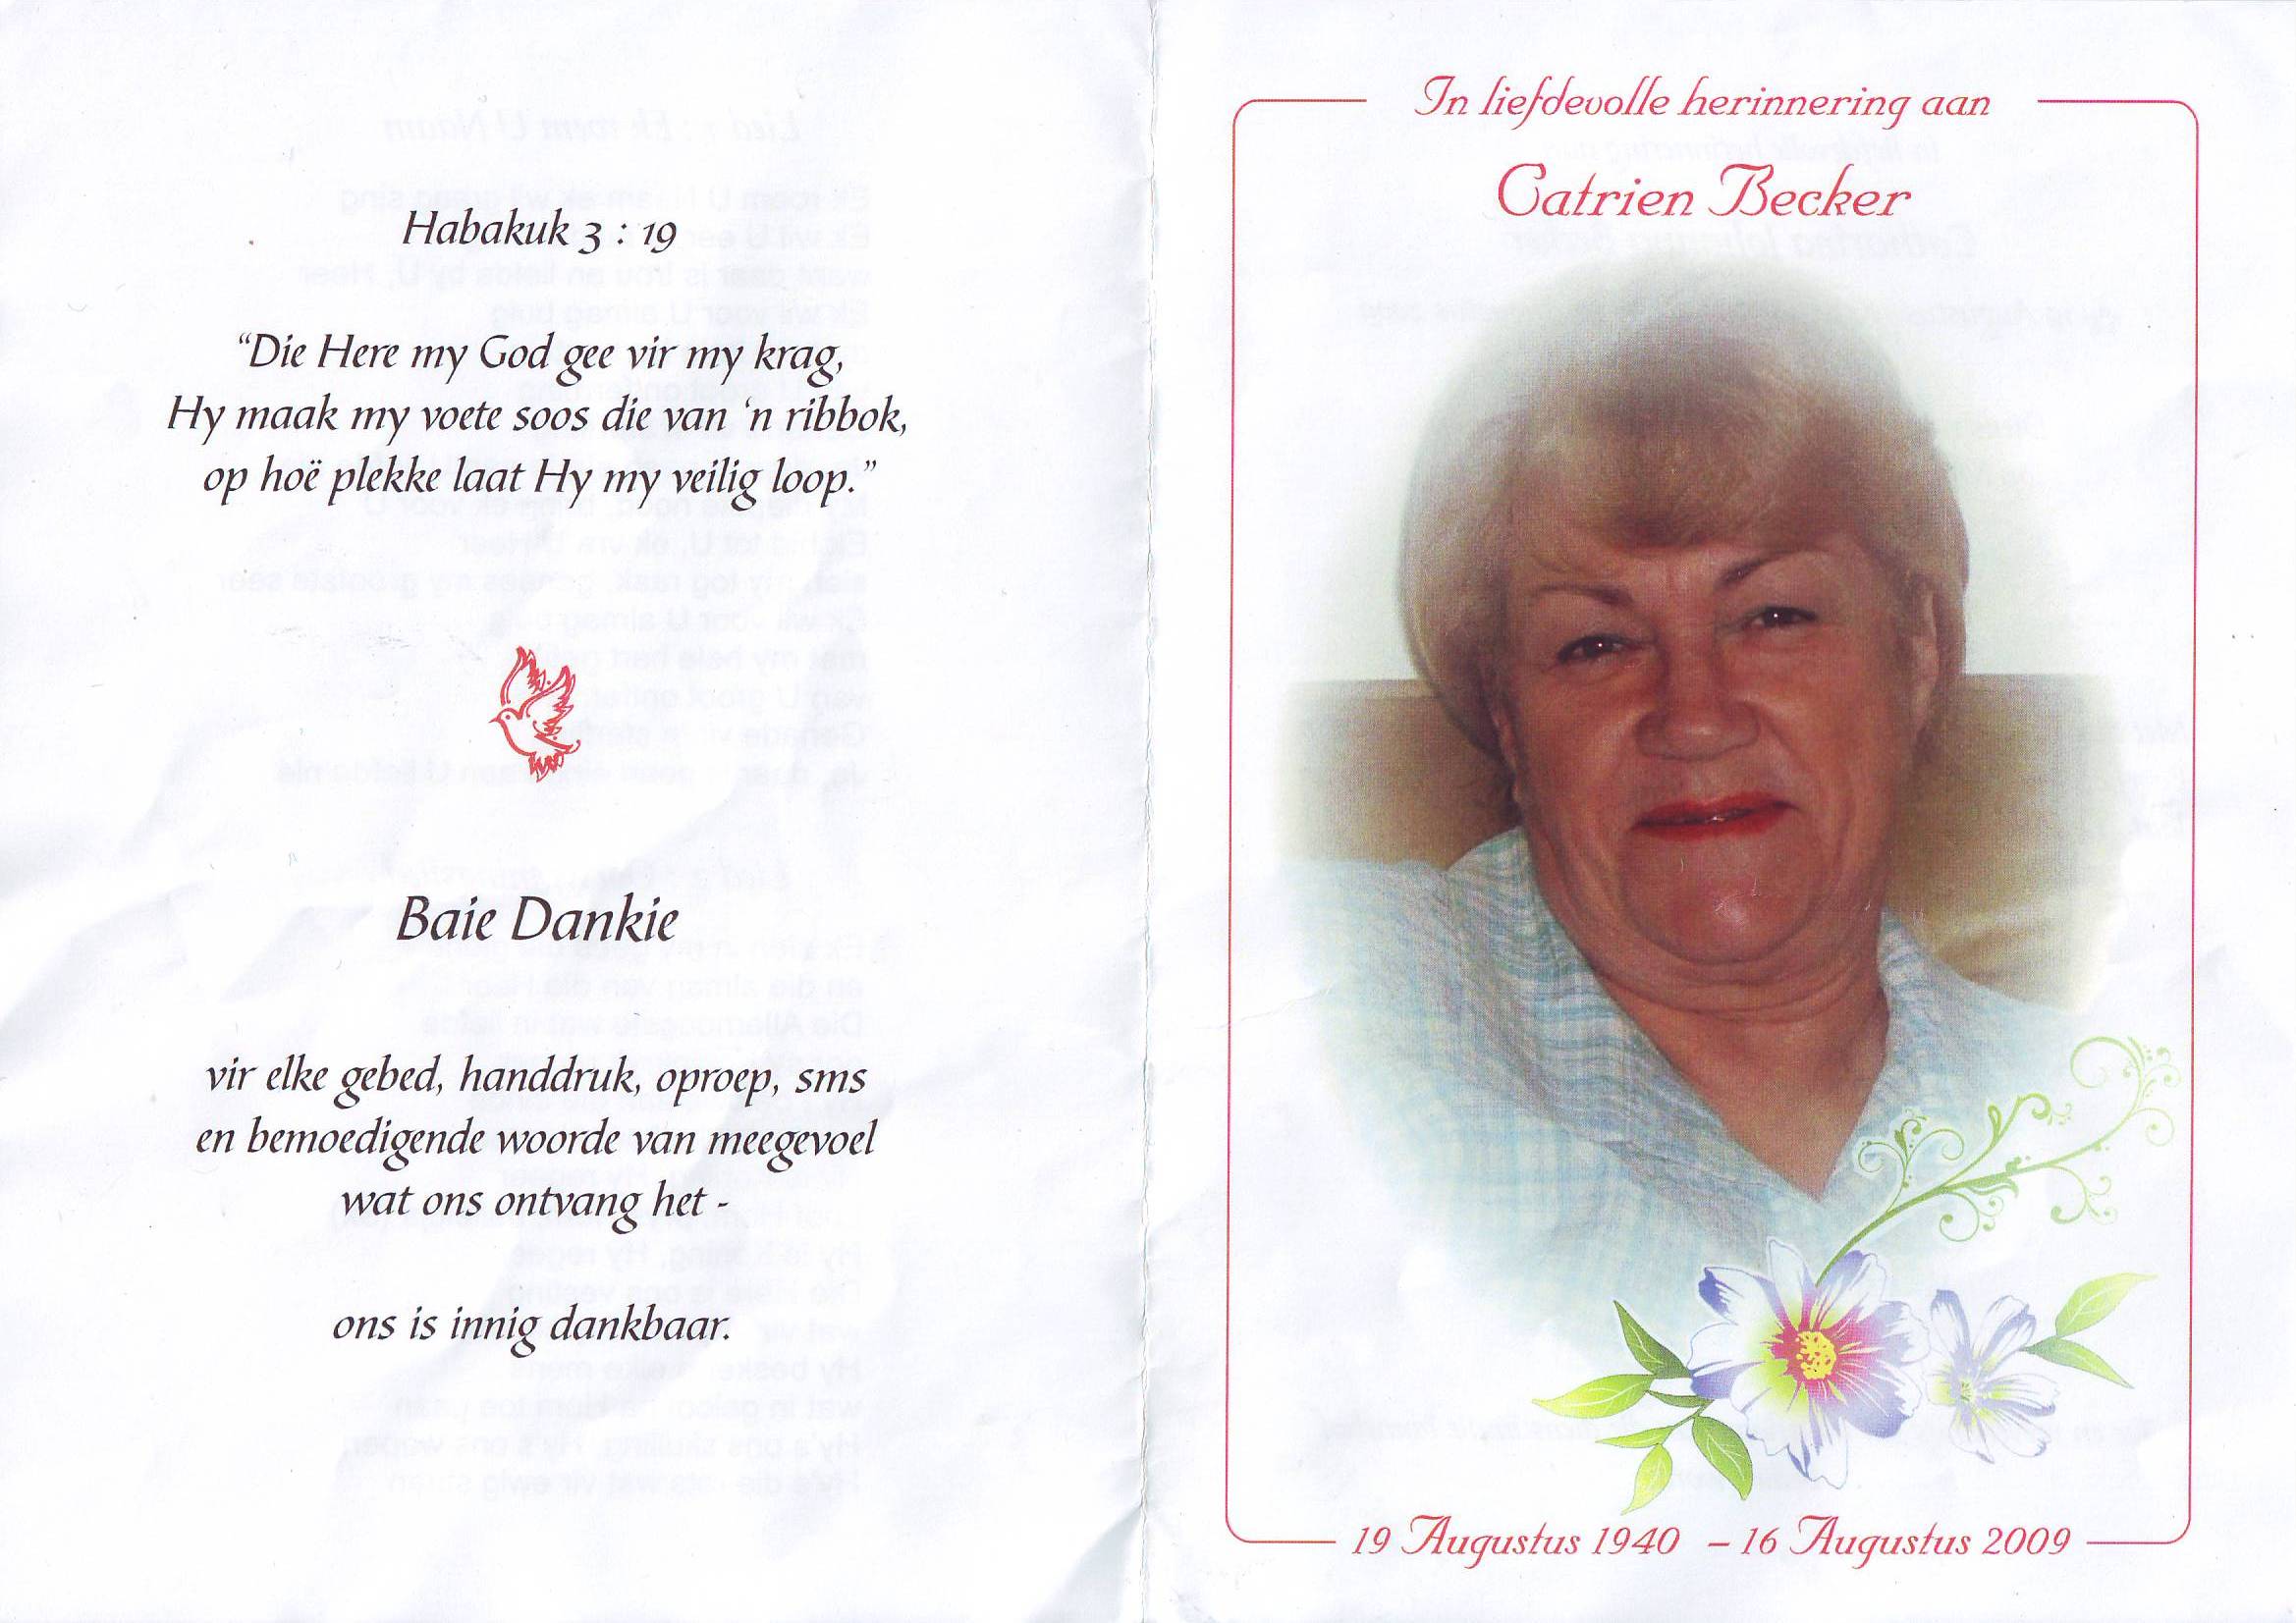 Habakuk 3 : 19
“Die Here my God gee vir my krag,
Hy maak my voete soos die van ‘n ribbok,
op hoë plekke laat Hy my veilig loop.”
Baie Dankie
vir elke gebed, handdruk, oproep, sms
en bemoedigende woorde van meegevoel
wat ons ontvang het -
ons is innig dankbaar.
In liefdevolle herinnering aan
Catrien Becker
19 Augustus 1940 – 16 Augustus 2009